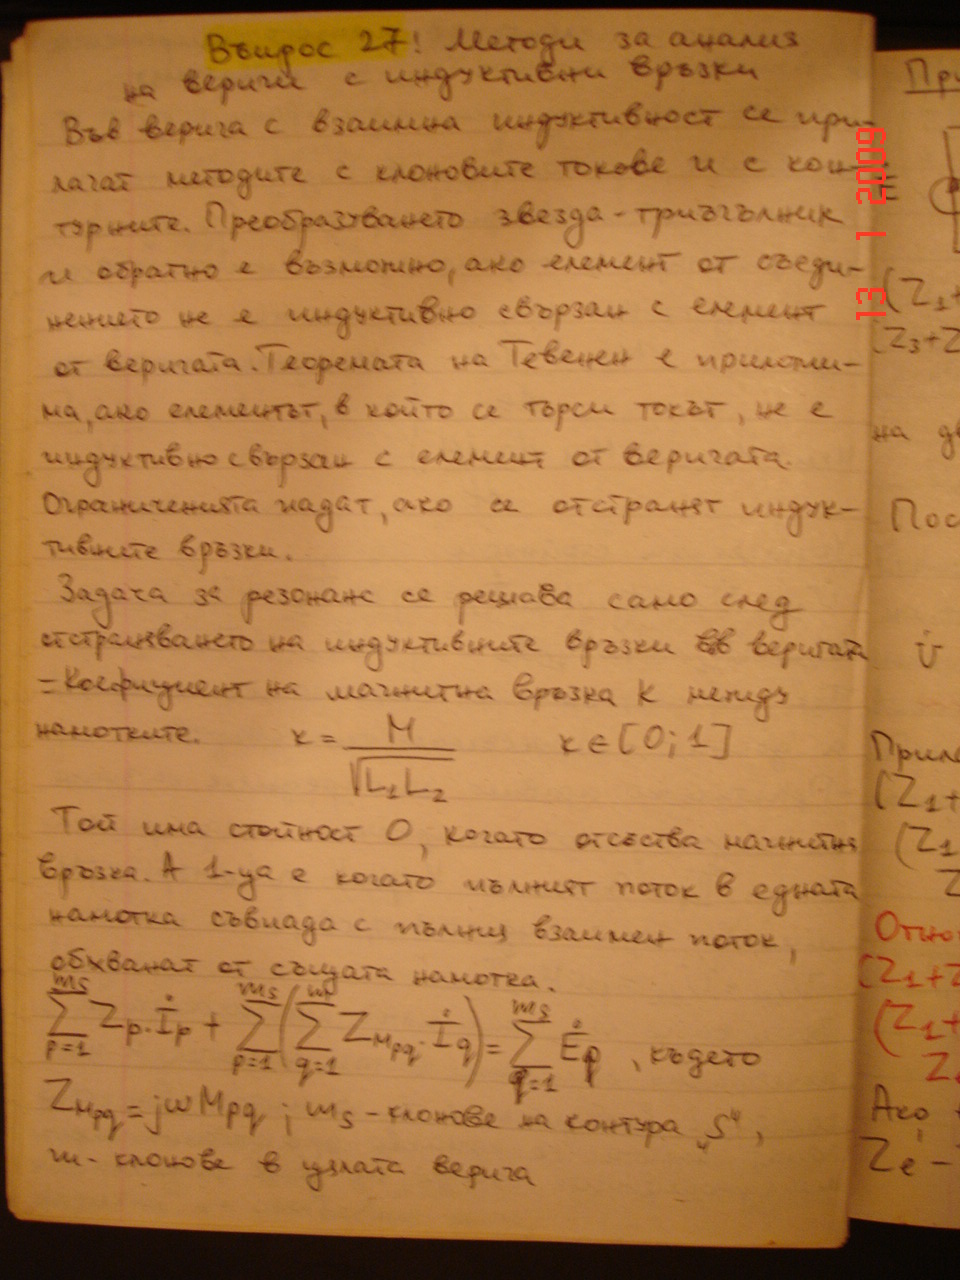 Въпрос 27: Методи за анализ
на вериги с индуктивни връзки
Във верига с взаимна индуктивност се при-
лагат методите с клоновите токове и с кон-
турните. Преобразуването звезда-триъгълник
и обратно е възможно, ако елемент от съеди-
нението не е индуктивно свързан с елемент
от веригата. Теоремата на Тевенен е приложи-
ма, ако елементът, в който се търси токът, не е
индуктивно свързан с елемент от веригата.
Ограниченията падат, ако се отстранят индук-
тивните връзки.
Задача за резонанс се решава само след
отстраняването на индуктивните връзки във веригата
=Коефициент на магнитна връзка K между
намотките. κ = M / √L₁L₂ κ ∈ [0;1]
Той има стойност 0, когато отсъства магнитна
връзка. А 1-ца е когато пълният поток в едната
намотка съвпада с пълния взаимен поток,
обхванат от същата намотка.
∑_{p=1}^{m_s} Z_p.İ_p + ∑_{p=1}^{m_s} (∑_{q=1}^{m} Z_{Mpq}.İ_q) = ∑_{q=1}^{m_s} Ė_p , където
Z_{Mpq} = jωM_{pq} ; m_s - клонове на контура „S",
m - клонове в цялата верига
При
(Z₃+
(Z₃+Z
на дв
Пос
U̇
Прило
(Z₁+
(Z₁
Z
Отно
(Z₁+Z
(Z₁+
Z
Ако
Z_e -
13 1 2009